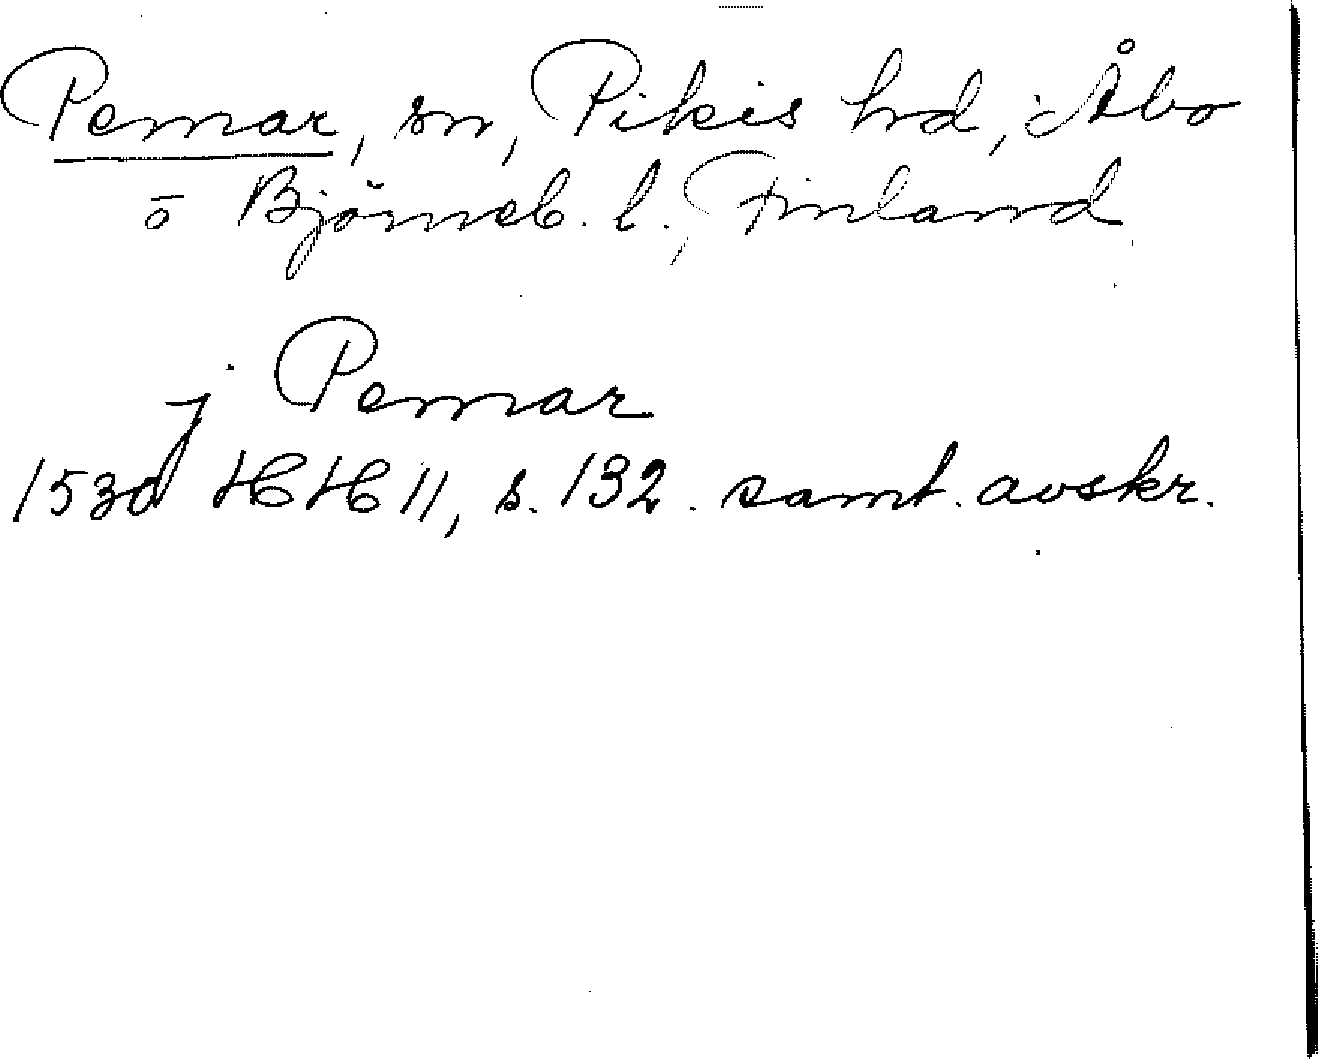 Pemar, sn, Pikis hd, Åbo
o Björneb. l., Finland
j Pemar
1530 HH 11, s. 132. samt. avskr.